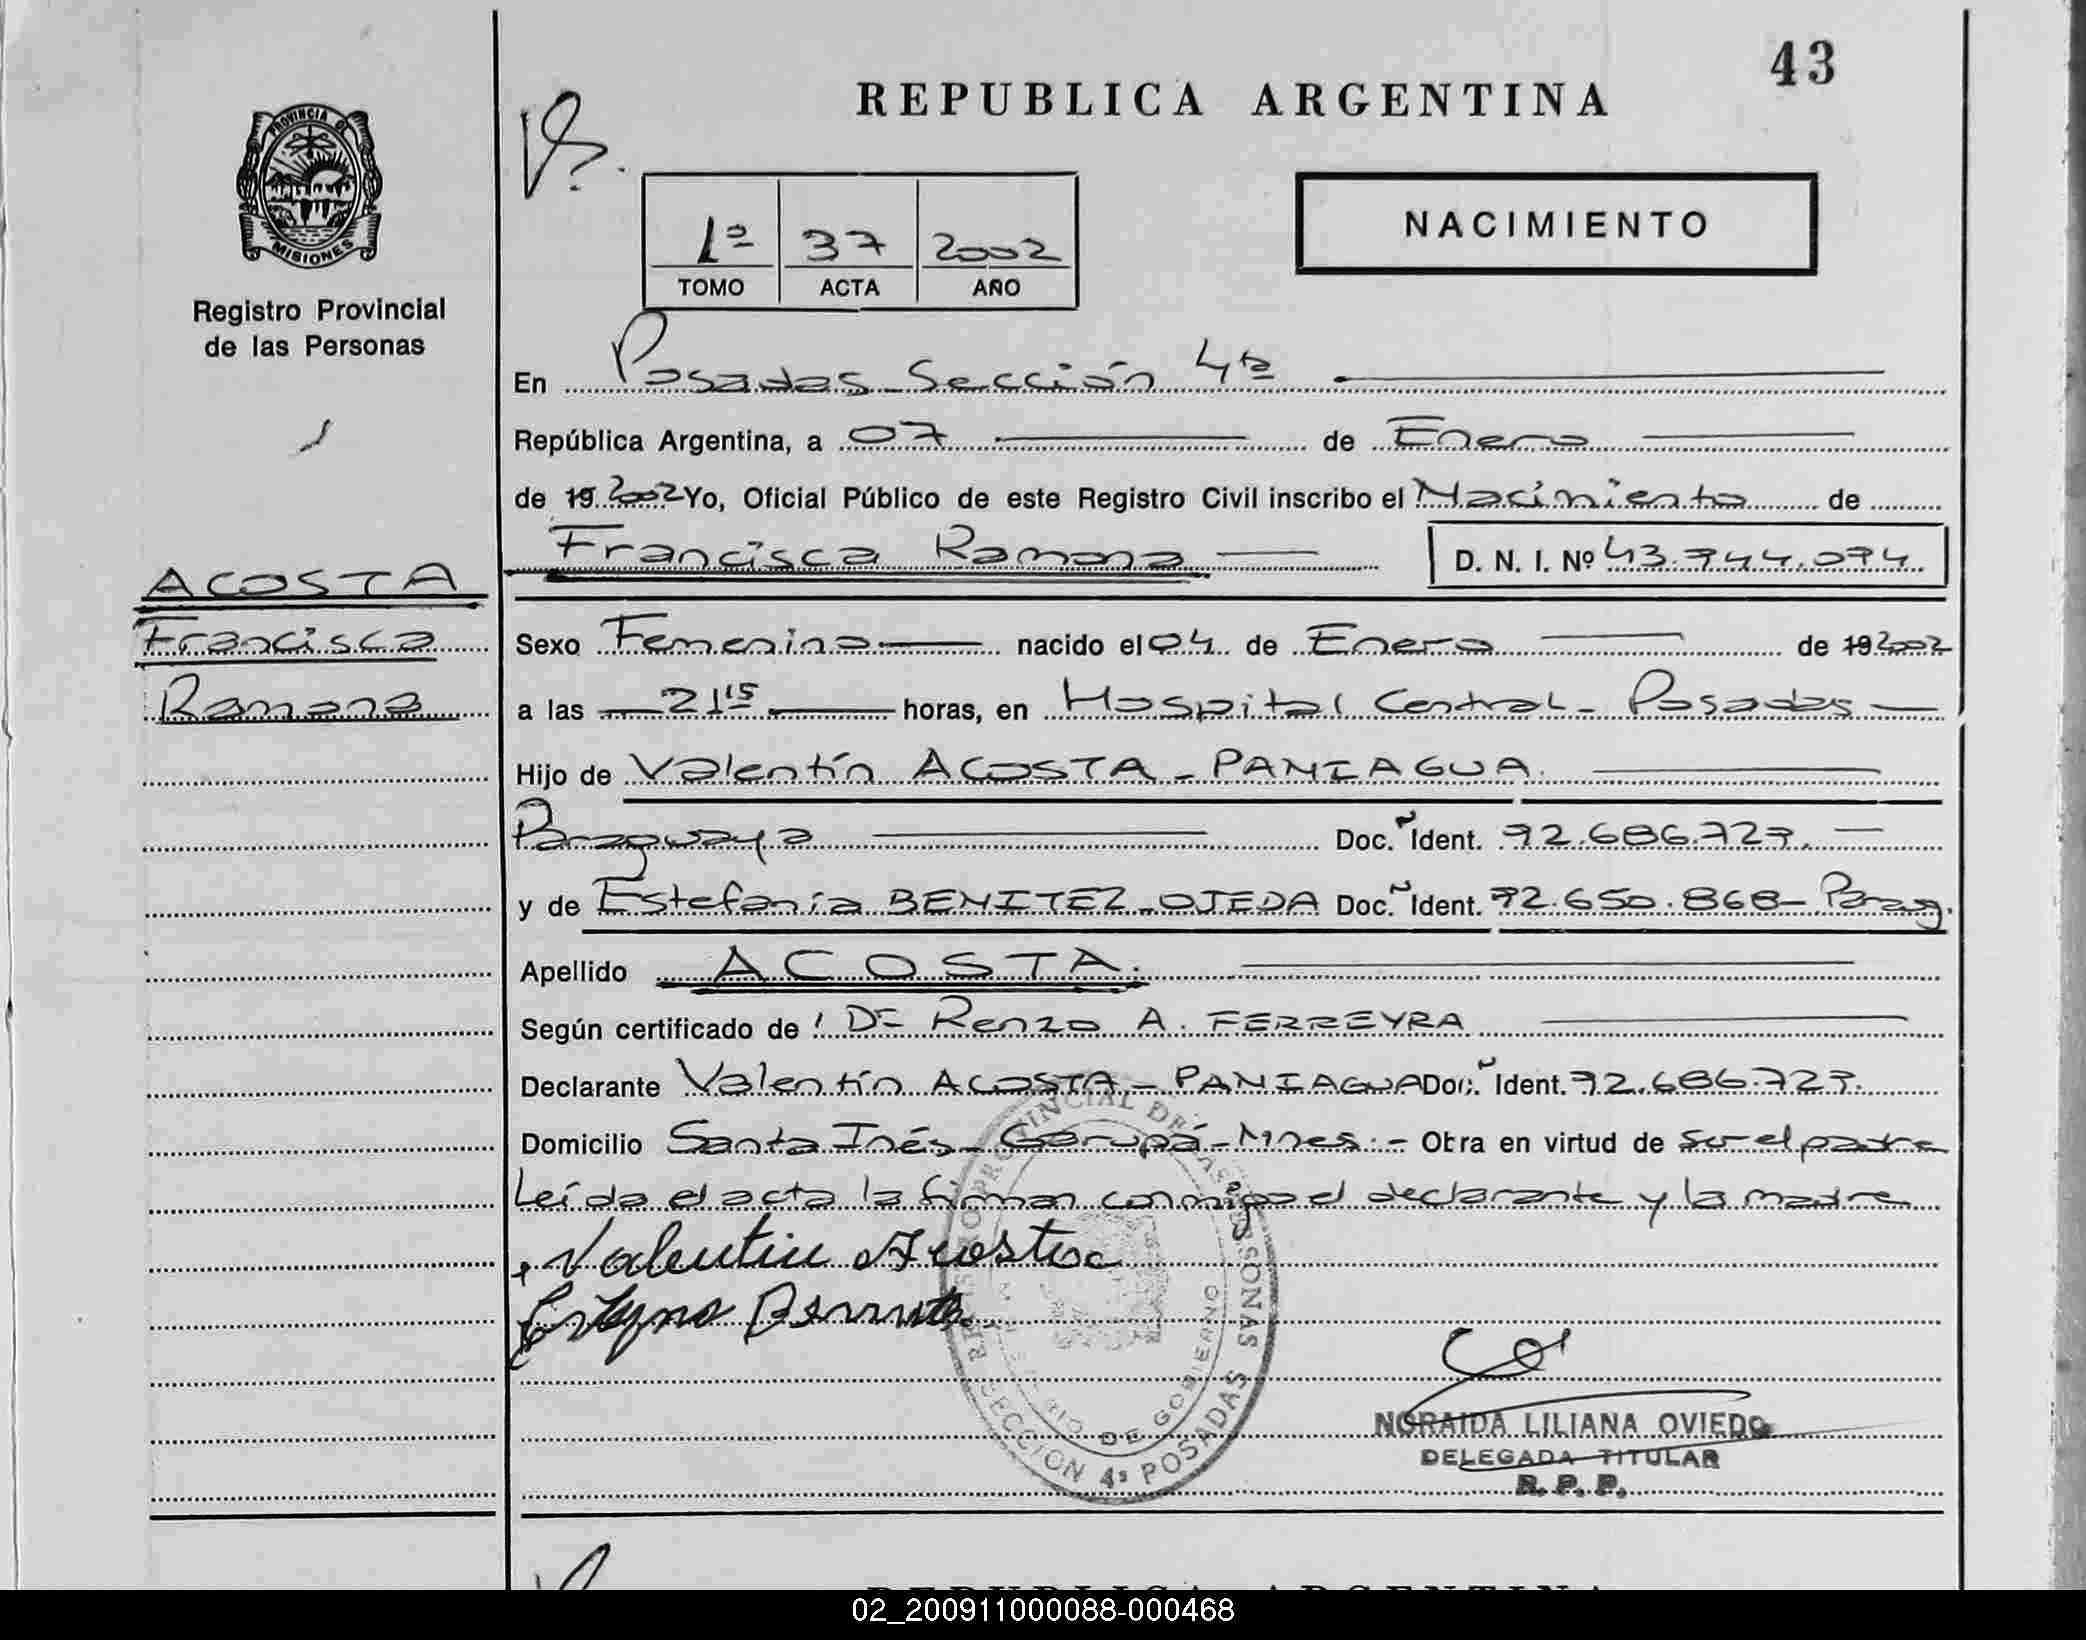 43
REPUBLICA ARGENTINA
PROVINCIA DE
MISIONES
Registro Provincial
de las Personas
1º 37 2002
TOMO ACTA AÑO
NACIMIENTO
En Posadas Sección 4ta
República Argentina, a 07 de Enero
de 19 2002 Yo, Oficial Público de este Registro Civil inscribo el Nacimiento de
Francisca Ramona D. N. I. Nº 43.744.074.
ACOSTA
Francisca
Ramona
Sexo Femenino nacido el 04 de Enero de 19 2002
a las 21 15 horas, en Hospital Central - Posadas
Hijo de Valentín ACOSTA - PANIAGUA.
Paraguaya Doc. Ident. 92.686.727.
y de Estefanía BENITEZ - OJEDA Doc. Ident. 92.650.868 - Parag.
Apellido ACOSTA.
Según certificado de Dr Renzo A. FERREYRA
Declarante Valentín ACOSTA - PANIAGUA Doc. Ident. 92.686.727.
Domicilio Santa Inés - Garupá - Mnes. - Obra en virtud de ser el padre
Leída el acta la firman conmigo el declarante y la madre
Valentin Acosta
REGISTRO PROVINCIAL DE LAS PERSONAS
MINISTERIO DE GOBIERNO
SECCION 4ª POSADAS
NORAIDA LILIANA OVIEDO
DELEGADA TITULAR
R. P. P.
REPUBLICA ARGENTINA
02_200911000088-000468